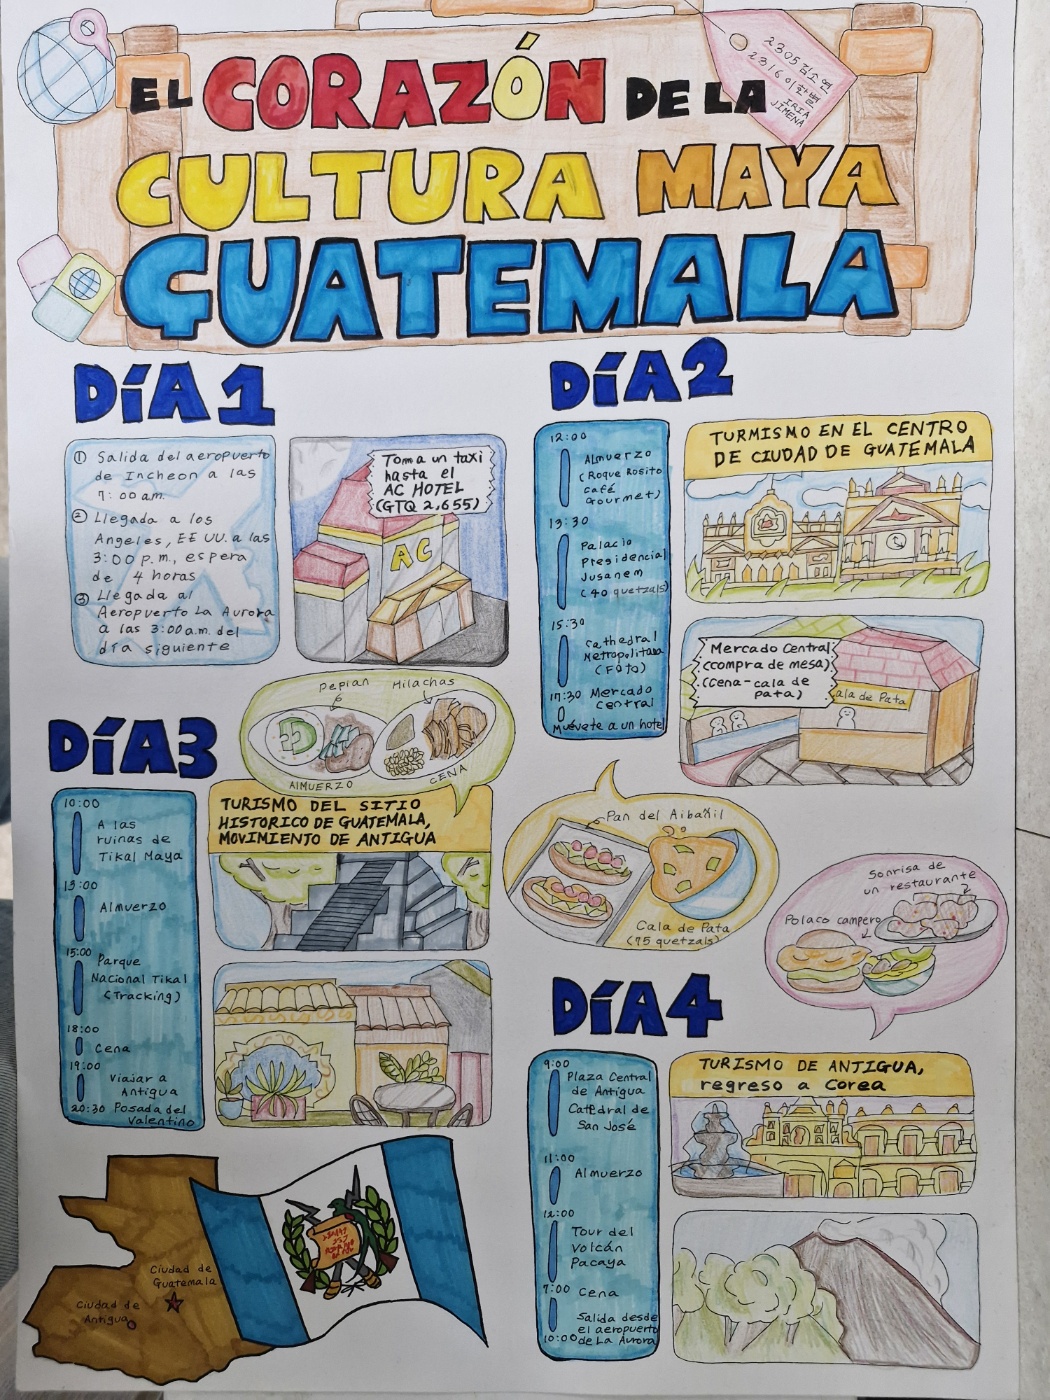 EL CORAZÓN DE LA
CULTURA MAYA
GUATEMALA
2305 김소연
IRIA
JIMENA
DÍA 1
① Salida del aeropuerto
de Incheon a las
7:00 am.
② Llegada a los
Angeles, EE UU. a las
3:00 p.m, espera
de 4 horas
③ Llegada al
Aeropuerto La Aurora
a las 3:00 a.m. del
día siguiente
Toma un taxi
hasta el
AC HOTEL
(GTQ 2,655)
AC
DÍA 2
12:00
Almuerzo
(Roque Rosito
café
Gourmet)
13:30
Palacio
Presidencial
Jusanem
(40 quetzals)
15:30
Cathedral
Metropolitana
(Foto)
17:30 Mercado
central
Muévete a un hotel
TURMISMO EN EL CENTRO
DE CIUDAD DE GUATEMALA
Mercado Central
(compra de mesa)
(Cena-cala de
pata)
ala de Pata
Pepian Hilachas
ALMUERZO CENA
DÍA 3
10:00
A las
ruinas de
Tikal Maya
13:00
Almuerzo
15:00 Parque
Nacional Tikal
(Tracking)
18:00
Cena
19:00
Viajar a
Antigua
20:30 Posada del
Valentino
TURISMO DEL SITIO
HISTORICO DE GUATEMALA,
MOVIMIENTO DE ANTIGUA
Pan del Aibañil
Cala de Pata
(75 quetzals)
Sonrisa de
un restaurante
Polaco campero
DÍA 4
9:00
Plaza Central
de Antigua
Catedral de
San José
11:00
Almuerzo
12:00
Tour del
Volcán
Pacaya
7:00 Cena
Salida desde
el aeropuerto
10:00 de La Aurora
TURISMO DE ANTIGUA,
regreso a Corea
Ciudad de
Guatemala
Ciudad de
Antigua